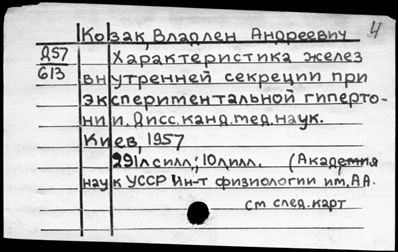 Козак, Владлен Андреевич 4
Д57 Характеристика желез
613 внутренней секреции при
экспериментальной гиперто-
нии. Дисс. канд. мед. наук.
Киев, 1957
291л силл.; 10л илл. (Академия
наук УССР Ин-т физиологии им. А.А.
см след. карт